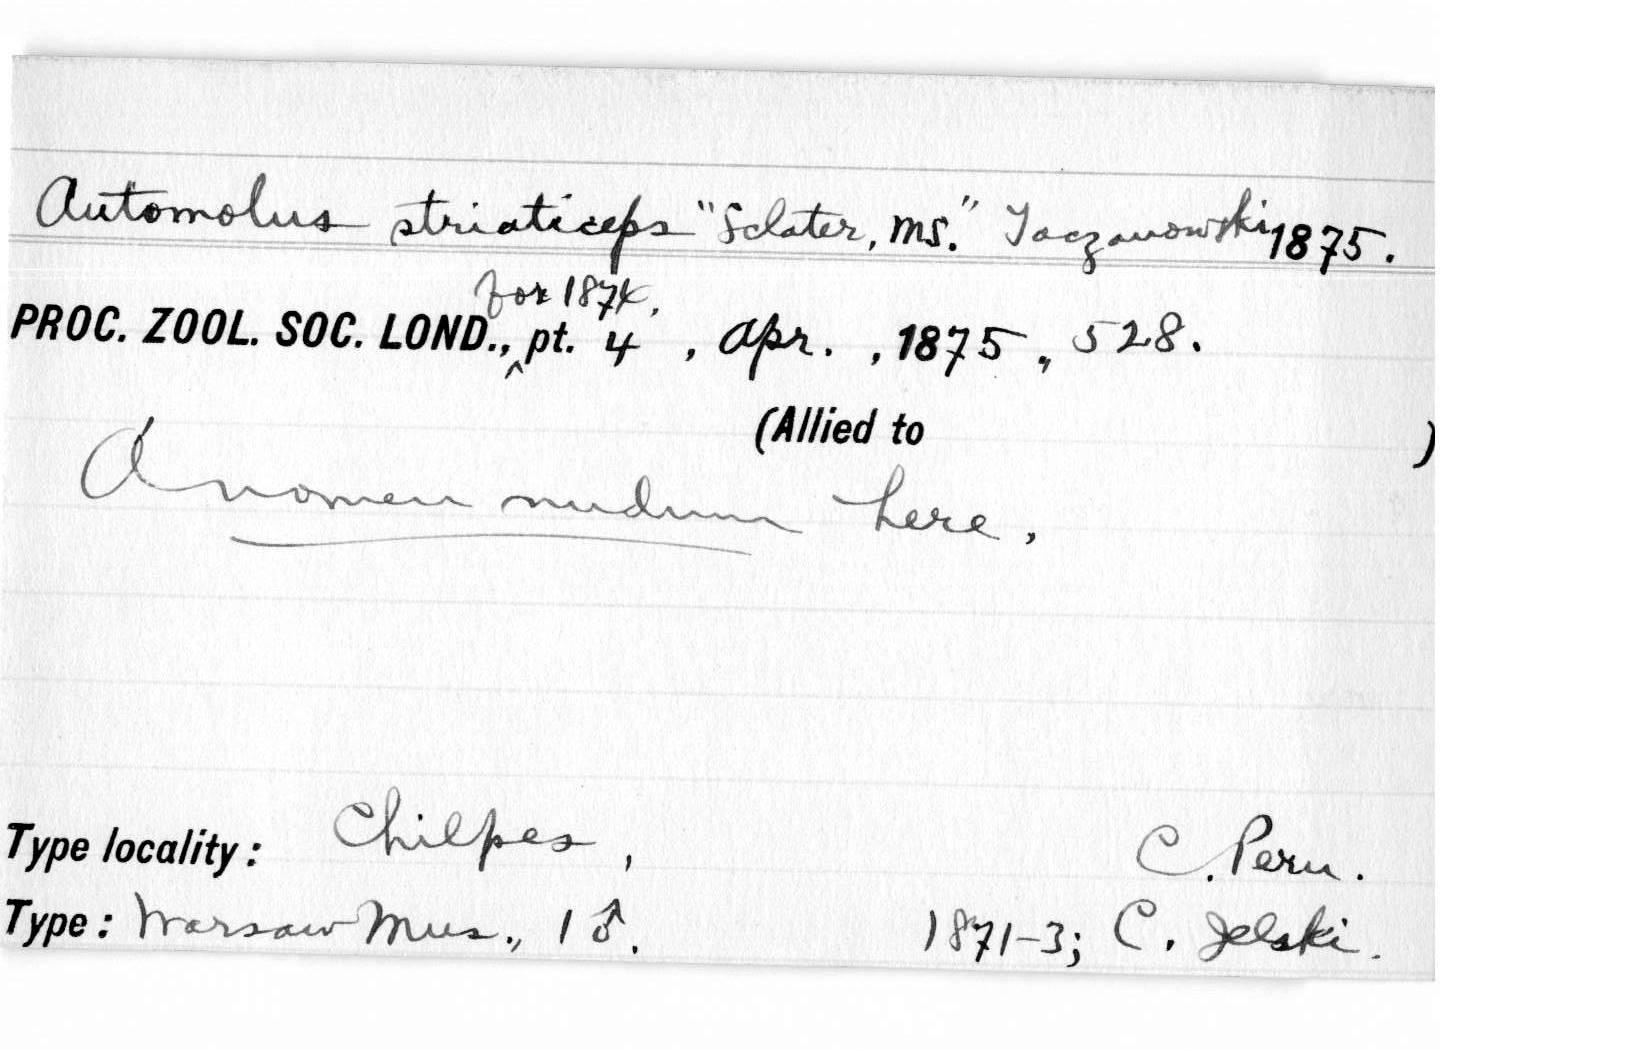 Automolus striaticeps "Sclater, MS." Taczanowski 1875.
for 1874,
PROC. ZOOL. SOC. LOND., ^ pt. 4 , Apr. , 1875 ,, 528.
(Allied to )
A nomen nudum here.
Type locality: Chilpes, C. Peru.
Type: Warsaw Mus., 1 ♂. 1871-3; C. Jelski.